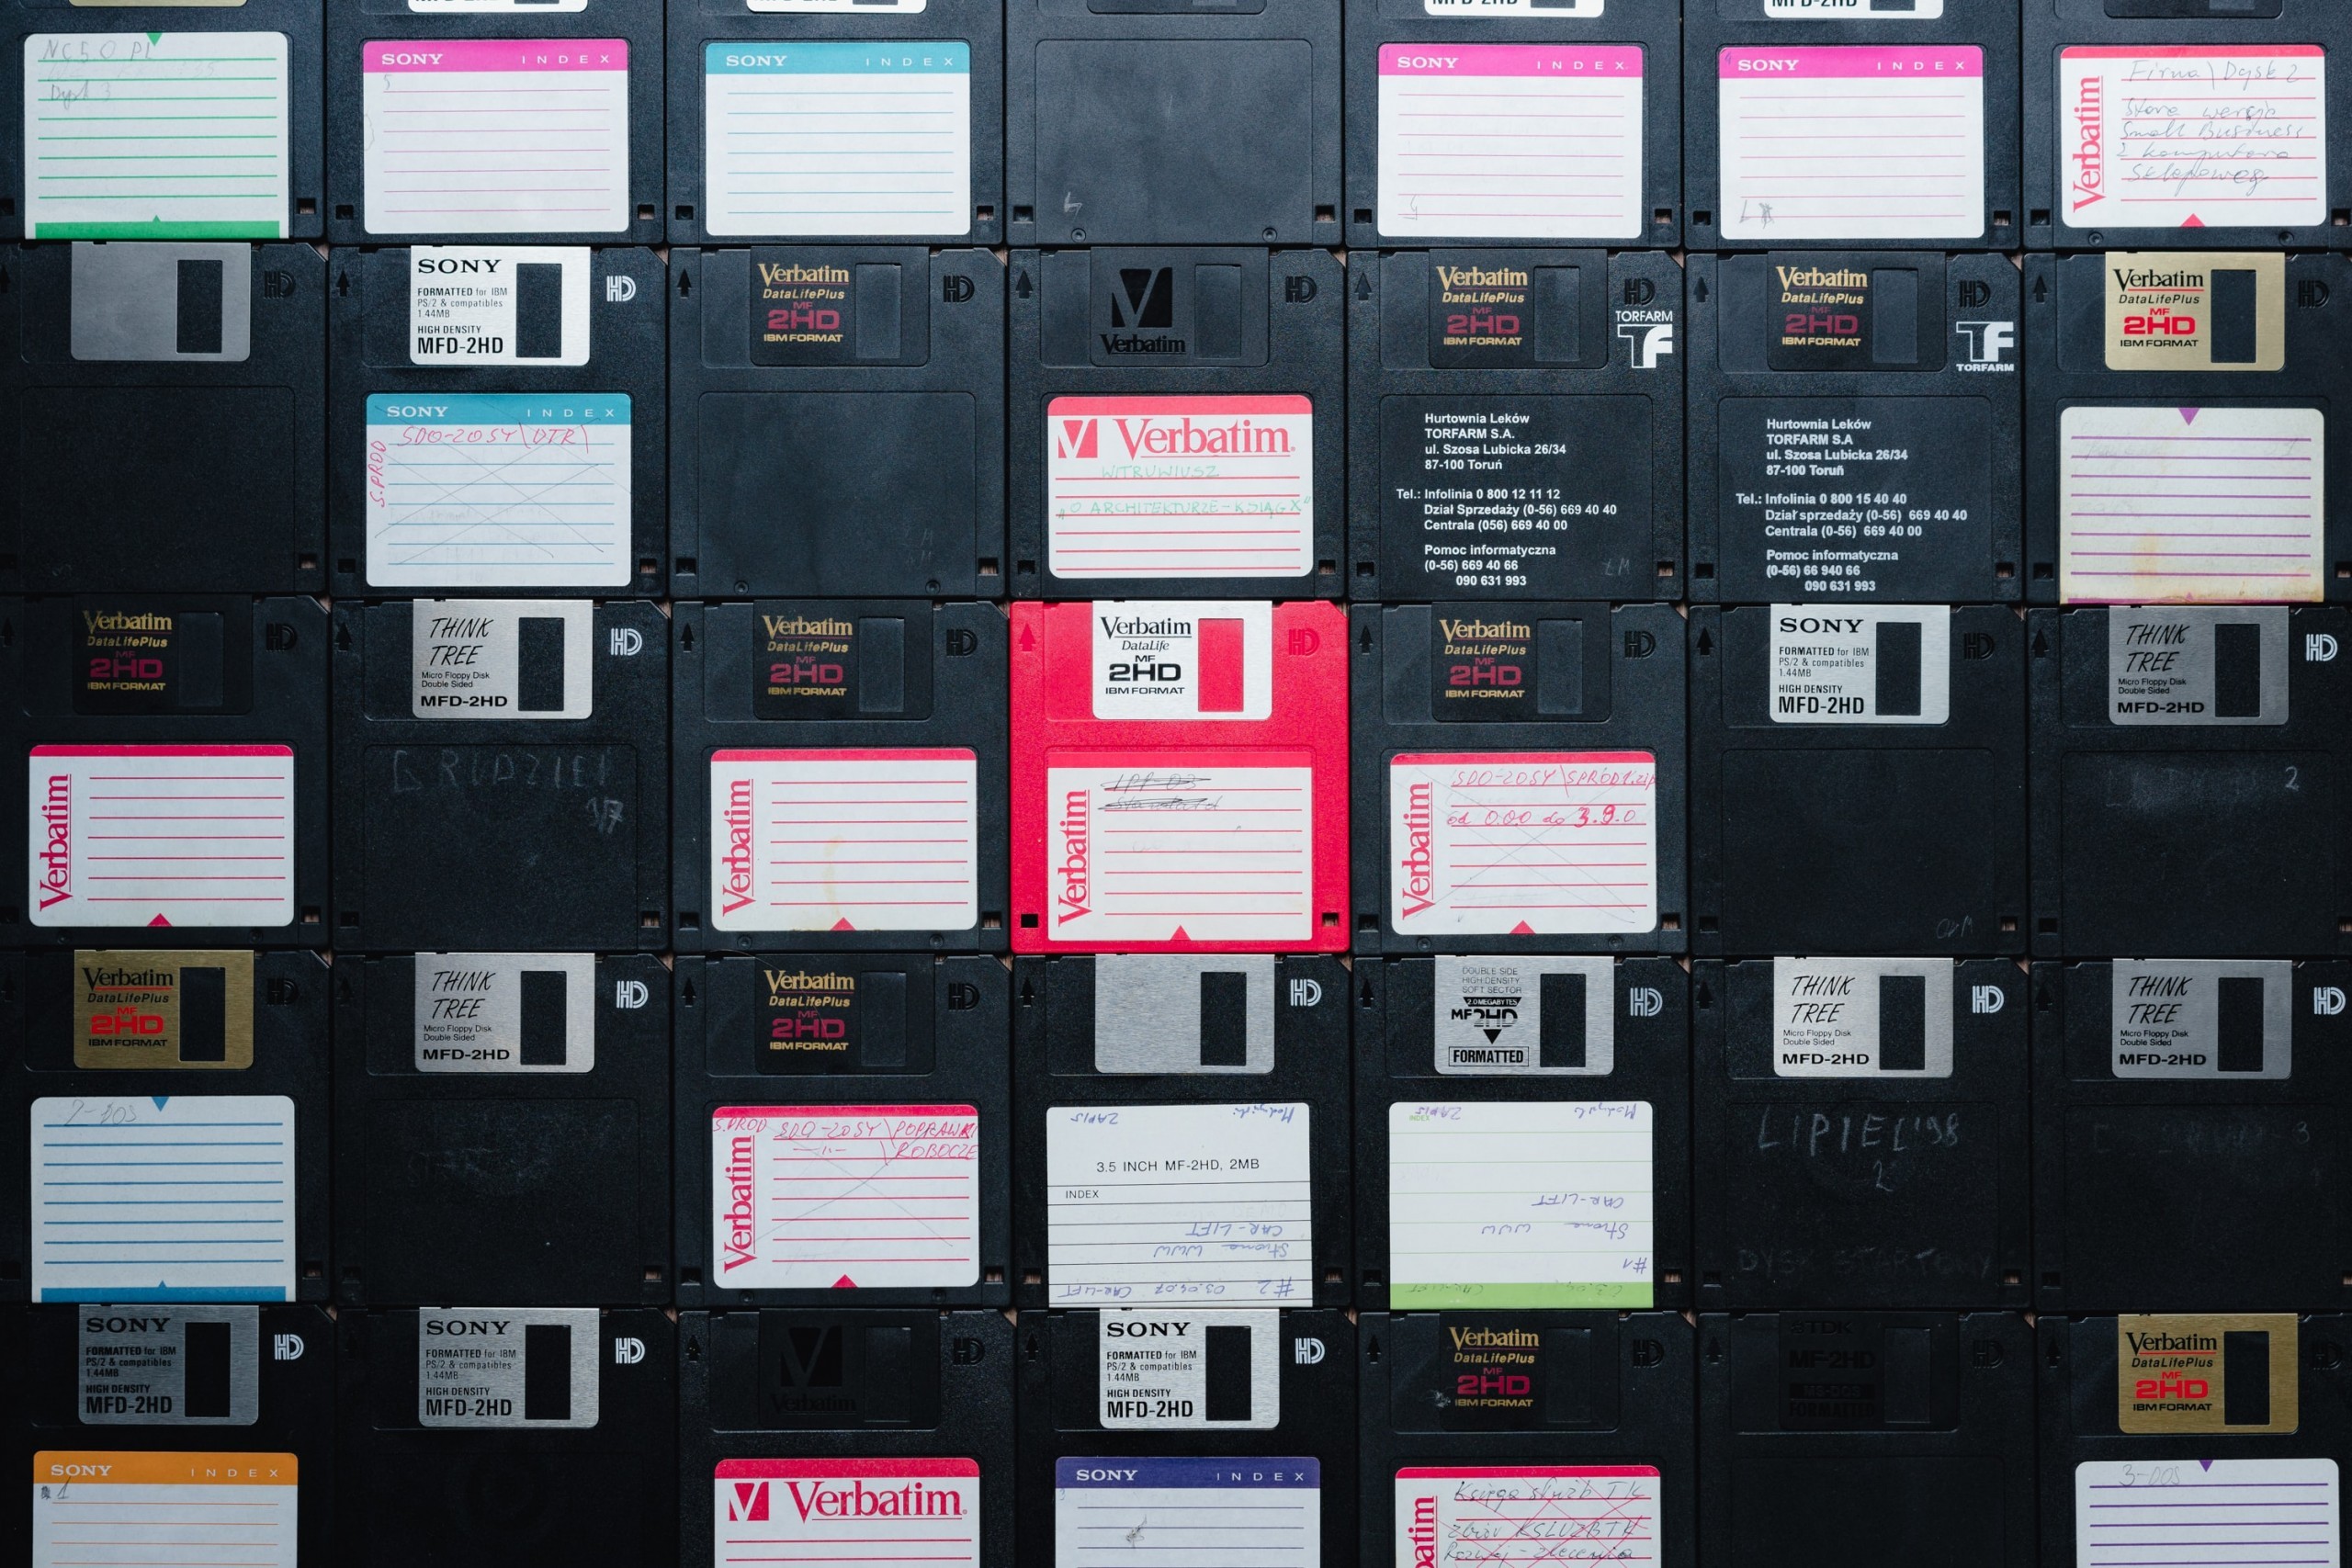 MFD-2HD
MFD-2HD
MFD-2HD
MFD-2HD
NC50 PL
Dysk 3
SONY INDEX
5
SONY INDEX
4
SONY INDEX
SONY INDEX
Verbatim
Firma\Dysk 2
Stara wersja
Small Business
z komputera
sklepowego
SONY
FORMATTED for IBM
PS/2 & compatibles
1.44MB
HIGH DENSITY
MFD-2HD
HD
SONY INDEX
S.PROD
SDO-20SY\DTR\
Verbatim
DataLifePlus
MF
2HD
IBM FORMAT
HD
Verbatim
HD
Verbatim
WITRUWIUSZ
"O ARCHITEKTURZE-KSIĄG X"
Verbatim
DataLifePlus
MF
2HD
IBM FORMAT
HD
TORFARM
TF
Hurtownia Leków
TORFARM S.A.
ul. Szosa Lubicka 26/34
87-100 Toruń
Tel.: Infolinia 0 800 12 11 12
Dział Sprzedaży (0-56) 669 40 40
Centrala (056) 669 40 00
Pomoc informatyczna
(0-56) 669 40 66
090 631 993
Verbatim
DataLifePlus
MF
2HD
IBM FORMAT
HD
TF
TORFARM
Hurtownia Leków
TORFARM S.A
ul. Szosa Lubicka 26/34
87-100 Toruń
Tel.: Infolinia 0 800 15 40 40
Dział sprzedaży (0-56) 669 40 40
Centrala (0-56) 669 40 00
Pomoc informatyczna
(0-56) 66 940 66
090 631 993
Verbatim
DataLifePlus
MF
2HD
IBM FORMAT
HD
Verbatim
DataLifePlus
MF
2HD
IBM FORMAT
HD
Verbatim
THINK
TREE
Micro Floppy Disk
Double Sided
MFD-2HD
HD
GRIDZIEŃ
1/7
Verbatim
DataLifePlus
MF
2HD
IBM FORMAT
HD
Verbatim
Verbatim
DataLife
MF
2HD
IBM FORMAT
HD
Verbatim
Standard
Verbatim
DataLifePlus
MF
2HD
IBM FORMAT
HD
Verbatim
SDO-20SY\SPROD1.zip
od 0.0.0 do 3.9.0
SONY
FORMATTED for IBM
PS/2 & compatibles
1.44MB
HIGH DENSITY
MFD-2HD
HD
THINK
TREE
Micro Floppy Disk
Double Sided
MFD-2HD
HD
2
Verbatim
DataLifePlus
MF
2HD
IBM FORMAT
HD
THINK
TREE
Micro Floppy Disk
Double Sided
MFD-2HD
HD
Verbatim
DataLifePlus
MF
2HD
IBM FORMAT
HD
S.PROD SDO-20SY\POPRAWKI
-"- \ROBOCZE
Verbatim
HD
ZAPIS
3.5 INCH MF-2HD, 2MB
INDEX
CAR-LIFT
Strona WWW
#2 03.04.07 CAR-LIFT
DOUBLE SIDE
HIGH DENSITY
SOFT SECTOR
2.0 MEGABYTES
MF2HD
FORMATTED
HD
INDEX
ZAPIS
CAR-LIFT
Strona WWW
#1
THINK
TREE
Micro Floppy Disk
Double Sided
MFD-2HD
HD
LIPIEC'98
2
THINK
TREE
Micro Floppy Disk
Double Sided
MFD-2HD
HD
3
SONY
FORMATTED for IBM
PS/2 & compatibles
1.44MB
HIGH DENSITY
MFD-2HD
HD
SONY INDEX
1
SONY
FORMATTED for IBM
PS/2 & compatibles
1.44MB
HIGH DENSITY
MFD-2HD
HD
Verbatim
HD
Verbatim
SONY
FORMATTED for IBM
PS/2 & compatibles
1.44MB
HIGH DENSITY
MFD-2HD
HD
SONY INDEX
Verbatim
DataLifePlus
MF
2HD
IBM FORMAT
HD
Księga służb TK
zbiór KSLUZBTK
Rozwój - zlecenia
TDK
MF-2HD
FORMATTED
HD
Verbatim
DataLifePlus
MF
2HD
IBM FORMAT
3-DOS